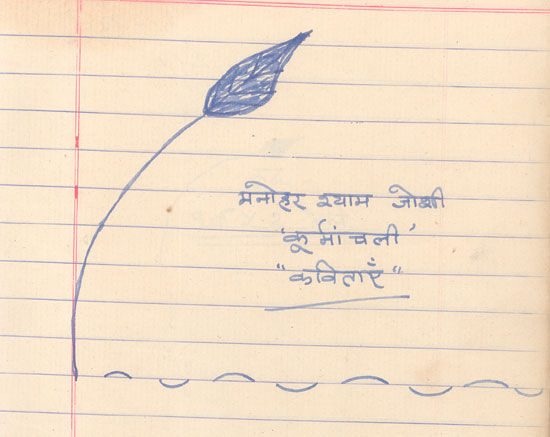 मनोहर श्याम जोशी
'कूर्मांचली'
"कविताएँ"